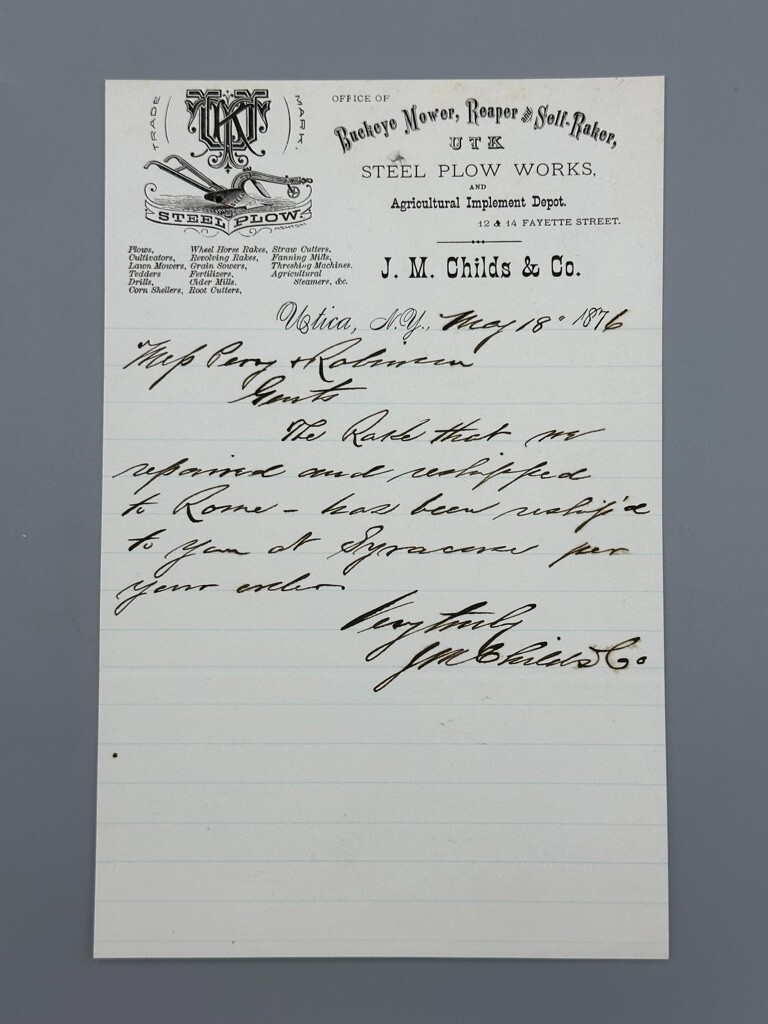 TRADE MARK.
UTK
STEEL PLOW.
OFFICE OF
Buckeye Mower, Reaper and Self-Raker,
UTK
STEEL PLOW WORKS,
AND
Agricultural Implement Depot.
12 & 14 FAYETTE STREET.
J. M. Childs & Co.
Plows, Wheel Horse Rakes, Straw Cutters,
Cultivators, Revolving Rakes, Fanning Mills,
Lawn Mowers, Grain Sowers, Threshing Machines.
Tedders Fertilizers, Agricultural
Drills, Cider Mills. Steamers, &c.
Corn Shellers, Root Cutters,
Utica, N.Y., May 18" 1876
Mess Perry & Robinson
Gents
The Rake that we
repaired and reshipped
to Rome - has been reship'd
to you at Syracuse per
your order
Very truly
JM Childs & Co